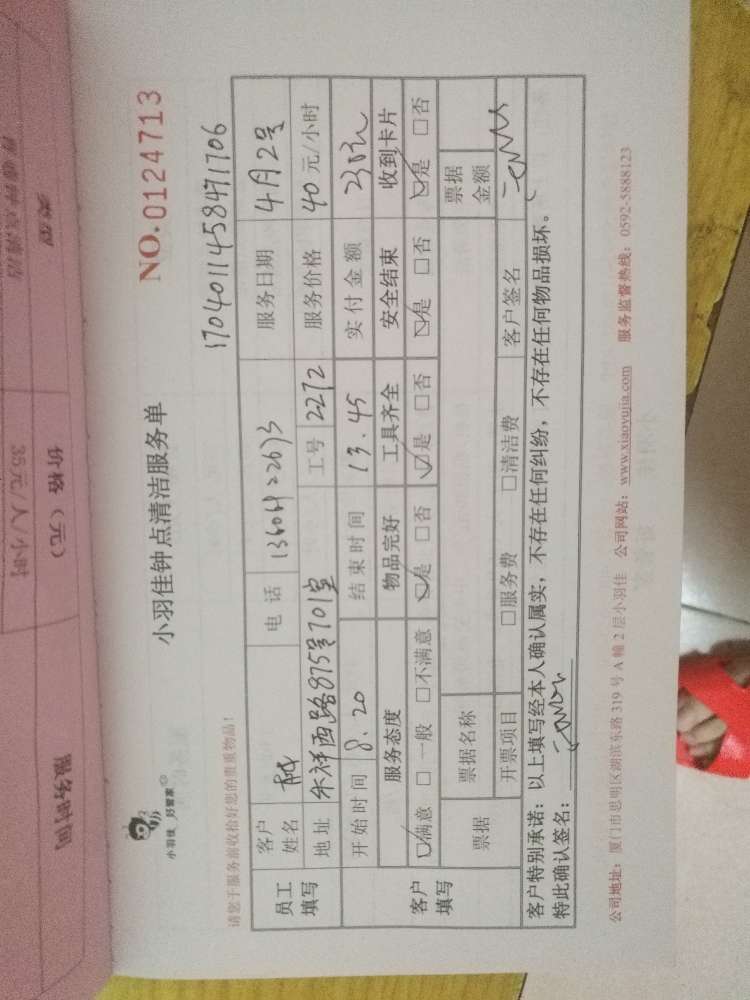 小羽佳 好管家
小羽佳钟点清洁服务单
NO.0124713
请您于服务前收拾好您的贵重物品！
1704011458471706
员工填写
客户姓名 林 电话 服务日期 4月2号
地址 西路875号701室 工号 2272 服务价格 40 元/小时
开始时间 8.20 结束时间 13.45 实付金额
客户填写
服务态度 物品完好 工具齐全 安全结束 收到卡片
☑满意 □一般 □不满意 ☑是 □否 ☑是 □否 ☑是 □否 ☑是 □否
票据 票据名称 票据金额
开票项目 □服务费 □清洁费 客户签名
客户特别承诺：以上填写经本人确认属实，不存在任何纠纷，不存在任何物品损坏。
特此确认签名：
公司地址：厦门市思明区湖滨东路319号A幢2层小羽佳 公司网站：www.xiaoyujia.com 服务监督热线：0592-5888123
价格（元）
35元/人/小时
服务时间